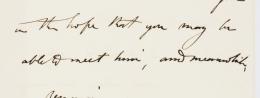 in the hope that you may be
able to meet him, and meanwhile,